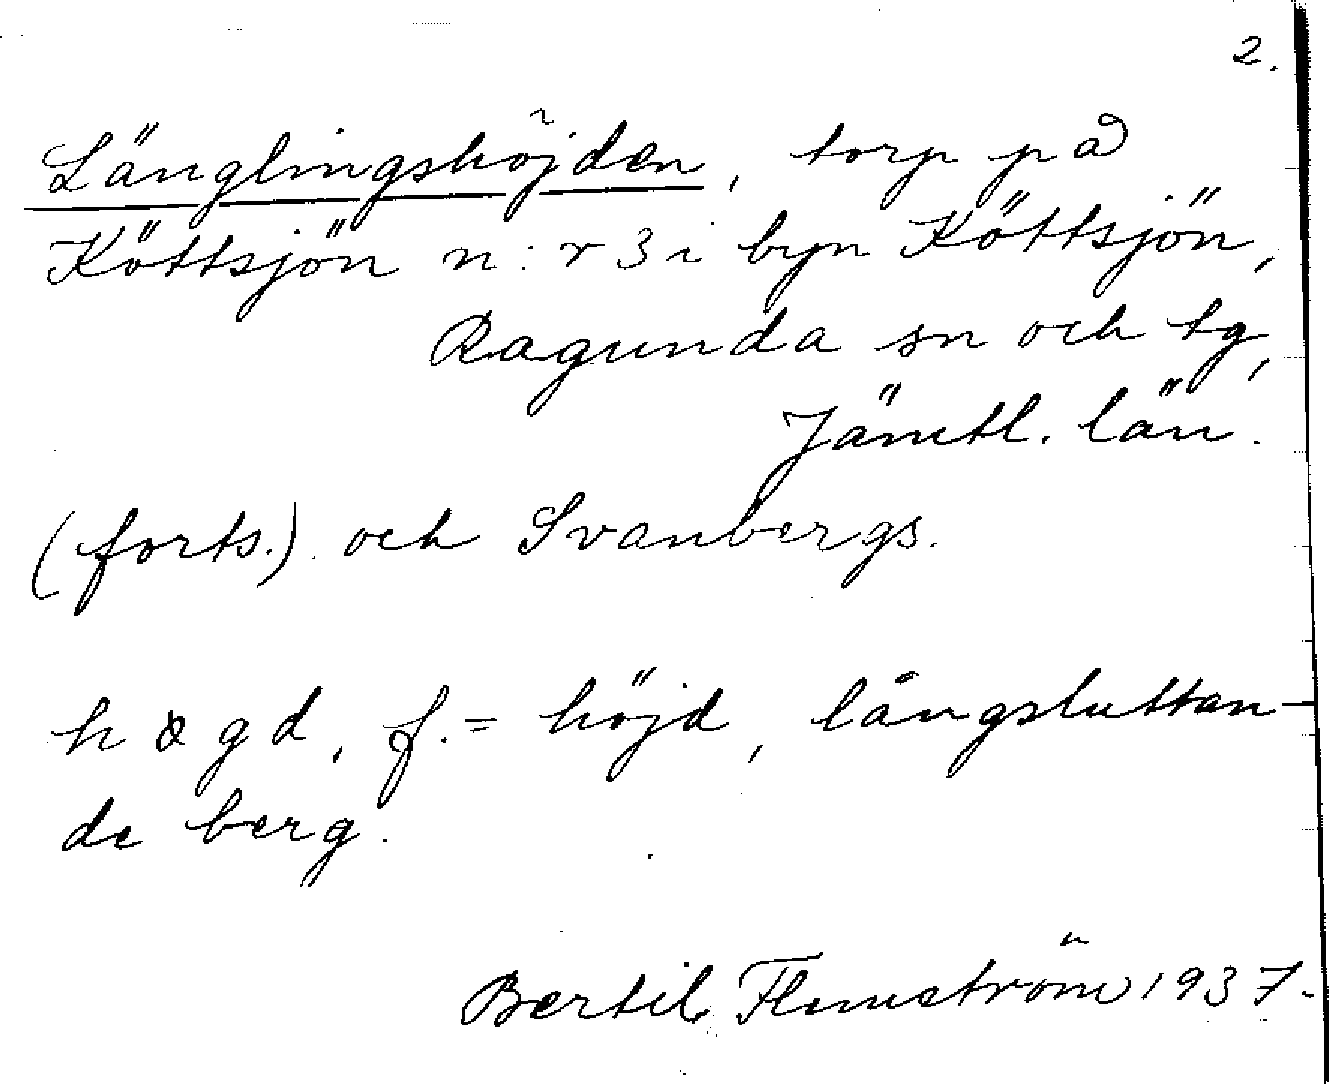 2.
Länglingshöjden, torp på
Köttsjön n:r 3 i byn Köttsjön,
Ragunda sn och tg,
Jämtl. län.
(forts.) och Svanbergs.
høgd, f. = höjd, långsluttan-
de berg.
Bertil Flemström 1937.